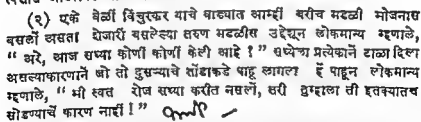 (२) एके वेळीं विंचुरकर याचे वाड्यात आम्हीं बरीच मडळी भोजनास
बसलों असता शेजारीं बसलेल्या तरुण मडळीस उद्देशून लोकमान्य म्हणाले,
“ अरे, आज सध्या कोणीं कोणीं केली आहे ? ” सध्येचा प्रत्येकानें टाळा दिला
असल्याकारणानें जो तो दुसऱ्याचे तोंडाकडे पाहू लागला हें पाहून लोकमान्य
म्हणाले, “ मी स्वत रोज सध्या करीत नसलों, तरी तुम्हाला ती इतक्यातच
सोडण्याचें कारण नाहीं ! ”